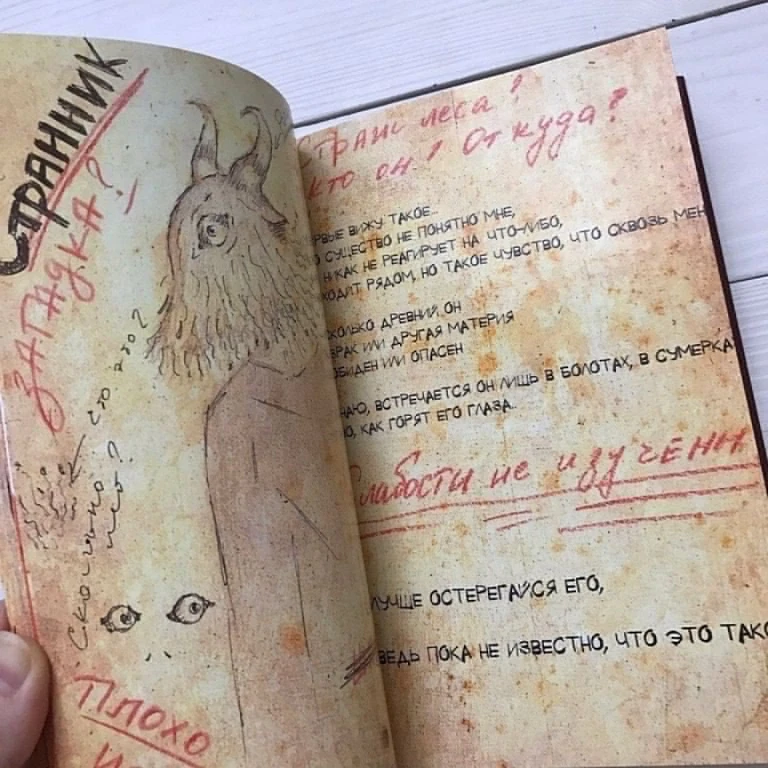 СТРАННИК
ЗАГАДКА?!
сто это?
Сколько
их?
Плохо
Страж леса?
кто он? Откуда?
ВИЖУ ТАКОЕ...
СУЩЕСТВО НЕ ПОНЯТНО МНЕ,
НИКАК НЕ РЕАГИРУЕТ НА ЧТО-ЛИБО,
РЯДОМ, НО ТАКОЕ ЧУВСТВО, ЧТО СКВОЗЬ МЕН
ДРЕВНИЙ ОН
ИЛИ ДРУГАЯ МАТЕРИЯ
ИЛИ ОПАСЕН
ВСТРЕЧАЕТСЯ ОН ЛИШЬ В БОЛОТАХ, В СУМЕРКА
КАК ГОРЯТ ЕГО ГЛАЗА...
Слабости не изучены
ЛУЧШЕ ОСТЕРЕГАЙСЯ ЕГО,
ВЕДЬ ПОКА НЕ ИЗВЕСТНО, ЧТО ЭТО ТАКО